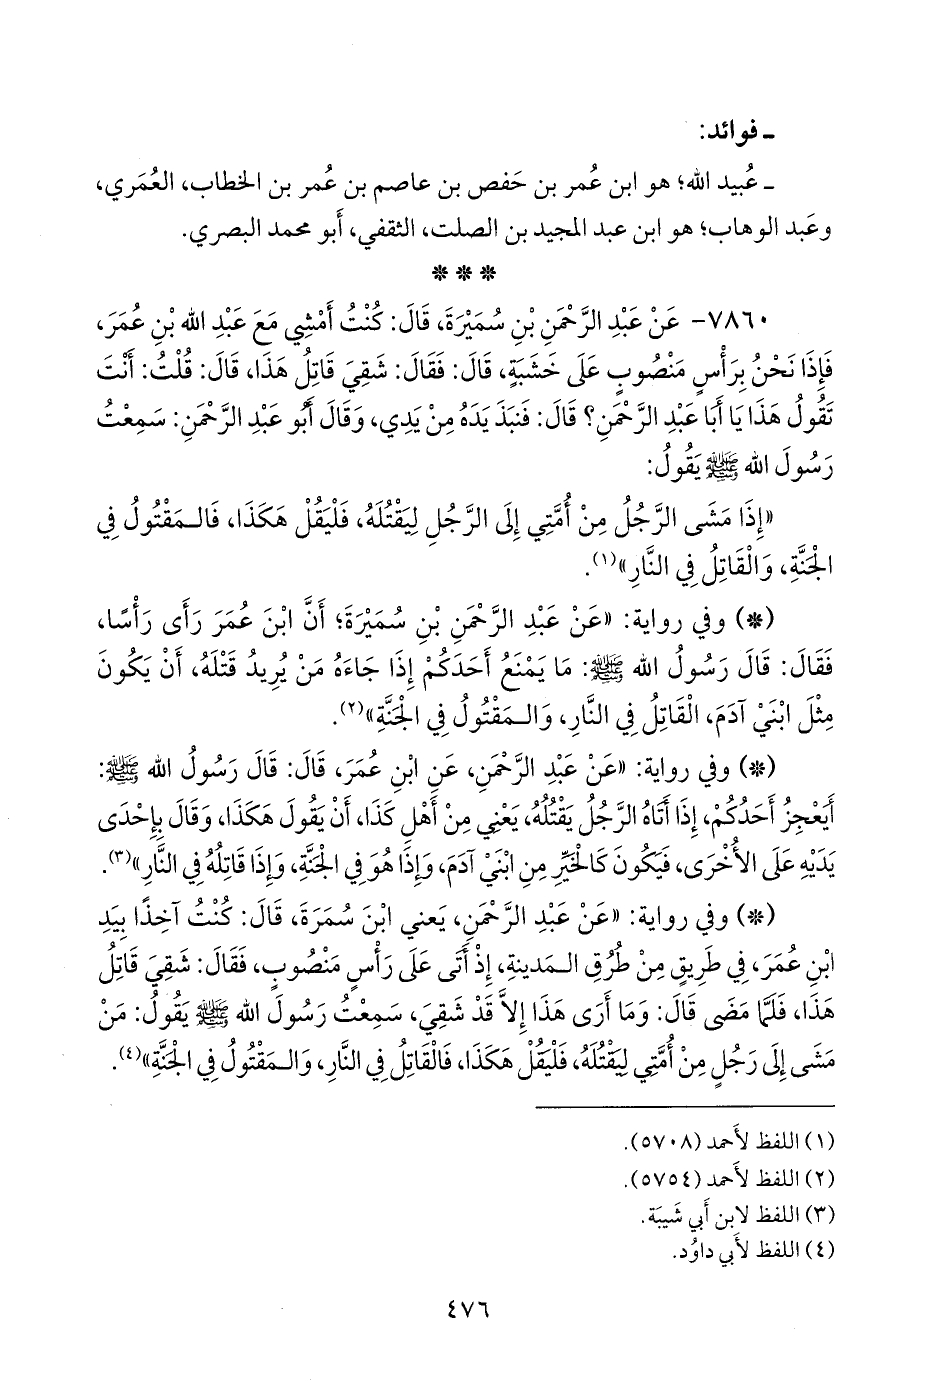 ـ فوائد:
ـ عُبيد الله؛ هو ابن عُمر بن حَفص بن عاصم بن عُمر بن الخطاب، العُمَري،
وعَبد الوهاب؛ هو ابن عبد المجيد بن الصلت، الثقفي، أَبو محمد البصري.
* * *
٧٨٦٠- عَنْ عَبْدِ الرَّحْمَنِ بْنِ سُمَيْرَةَ، قَالَ: كُنْتُ أَمْشِي مَعَ عَبْدِ الله بْنِ عُمَرَ،
فَإِذَا نَحْنُ بِرَأْسٍ مَنْصُوبٍ عَلَى خَشَبَةٍ، قَالَ: فَقَالَ: شَقِيَ قَاتِلُ هَذَا، قَالَ: قُلْتُ: أَنْتَ
تَقُولُ هَذَا يَا أَبَا عَبْدِ الرَّحْمَنِ؟ قَالَ: فَنَبَذَ يَدَهُ مِنْ يَدِي، وَقَالَ أَبُو عَبْدِ الرَّحْمَنِ: سَمِعْتُ
رَسُولَ الله ﷺ يَقُولُ:
«إِذَا مَشَى الرَّجُلُ مِنْ أُمَّتِي إِلَى الرَّجُلِ لِيَقْتُلَهُ، فَلْيَقُلْ هَكَذَا، فَالـمَقْتُولُ فِي
الجَنَّةِ، وَالْقَاتِلُ فِي النَّارِ»(١).
(*) وفي رواية: «عَنْ عَبْدِ الرَّحْمَنِ بْنِ سُمَيْرَةَ؛ أَنَّ ابْنَ عُمَرَ رَأَى رَأْسًا،
فَقَالَ: قَالَ رَسُولُ الله ﷺ: مَا يَمْنَعُ أَحَدَكُمْ إِذَا جَاءَهُ مَنْ يُرِيدُ قَتْلَهُ، أَنْ يَكُونَ
مِثْلَ ابْنَيْ آدَمَ، الْقَاتِلُ فِي النَّارِ، وَالـمَقْتُولُ فِي الجَنَّةِ»(٢).
(*) وفي رواية: «عَنْ عَبْدِ الرَّحْمَنِ، عَنِ ابْنِ عُمَرَ، قَالَ: قَالَ رَسُولُ الله ﷺ:
أَيَعْجِزُ أَحَدُكُمْ، إِذَا أَتَاهُ الرَّجُلُ يَقْتُلُهُ، يَعْنِي مِنْ أَهْلِ كَذَا، أَنْ يَقُولَ هَكَذَا، وَقَالَ بِإِحْدَى
يَدَيْهِ عَلَى الأُخْرَى، فَيَكُونَ كَالْخَيِّرِ مِنِ ابْنَيْ آدَمَ، وَإِذَا هُوَ فِي الجَنَّةِ، وَإِذَا قَاتِلُهُ فِي النَّارِ»(٣).
(*) وفي رواية: «عَنْ عَبْدِ الرَّحْمَنِ، يَعني ابْنَ سُمَرَةَ، قَالَ: كُنْتُ آخِذًا بِيَدِ
ابْنِ عُمَرَ، فِي طَرِيقٍ مِنْ طُرُقِ الـمَدِينةِ، إِذْ أَتَى عَلَى رَأْسٍ مَنْصُوبٍ، فَقَالَ: شَقِيَ قَاتِلُ
هَذَا، فَلَمَّا مَضَى قَالَ: وَمَا أَرَى هَذَا إِلاَّ قَدْ شَقِيَ، سَمِعْتُ رَسُولَ الله ﷺ يَقُولُ: مَنْ
مَشَى إِلَى رَجُلٍ مِنْ أُمَّتِي لِيَقْتُلَهُ، فَلْيَقُلْ هَكَذَا، فَالْقَاتِلُ فِي النَّارِ، وَالـمَقْتُولُ فِي الْجَنَّةِ»(٤).
(١) اللفظ لأَحمد (٥٧٠٨).
(٢) اللفظ لأَحمد (٥٧٥٤).
(٣) اللفظ لابن أَبي شَيبَة.
(٤) اللفظ لأَبي داوُد.
٤٧٦